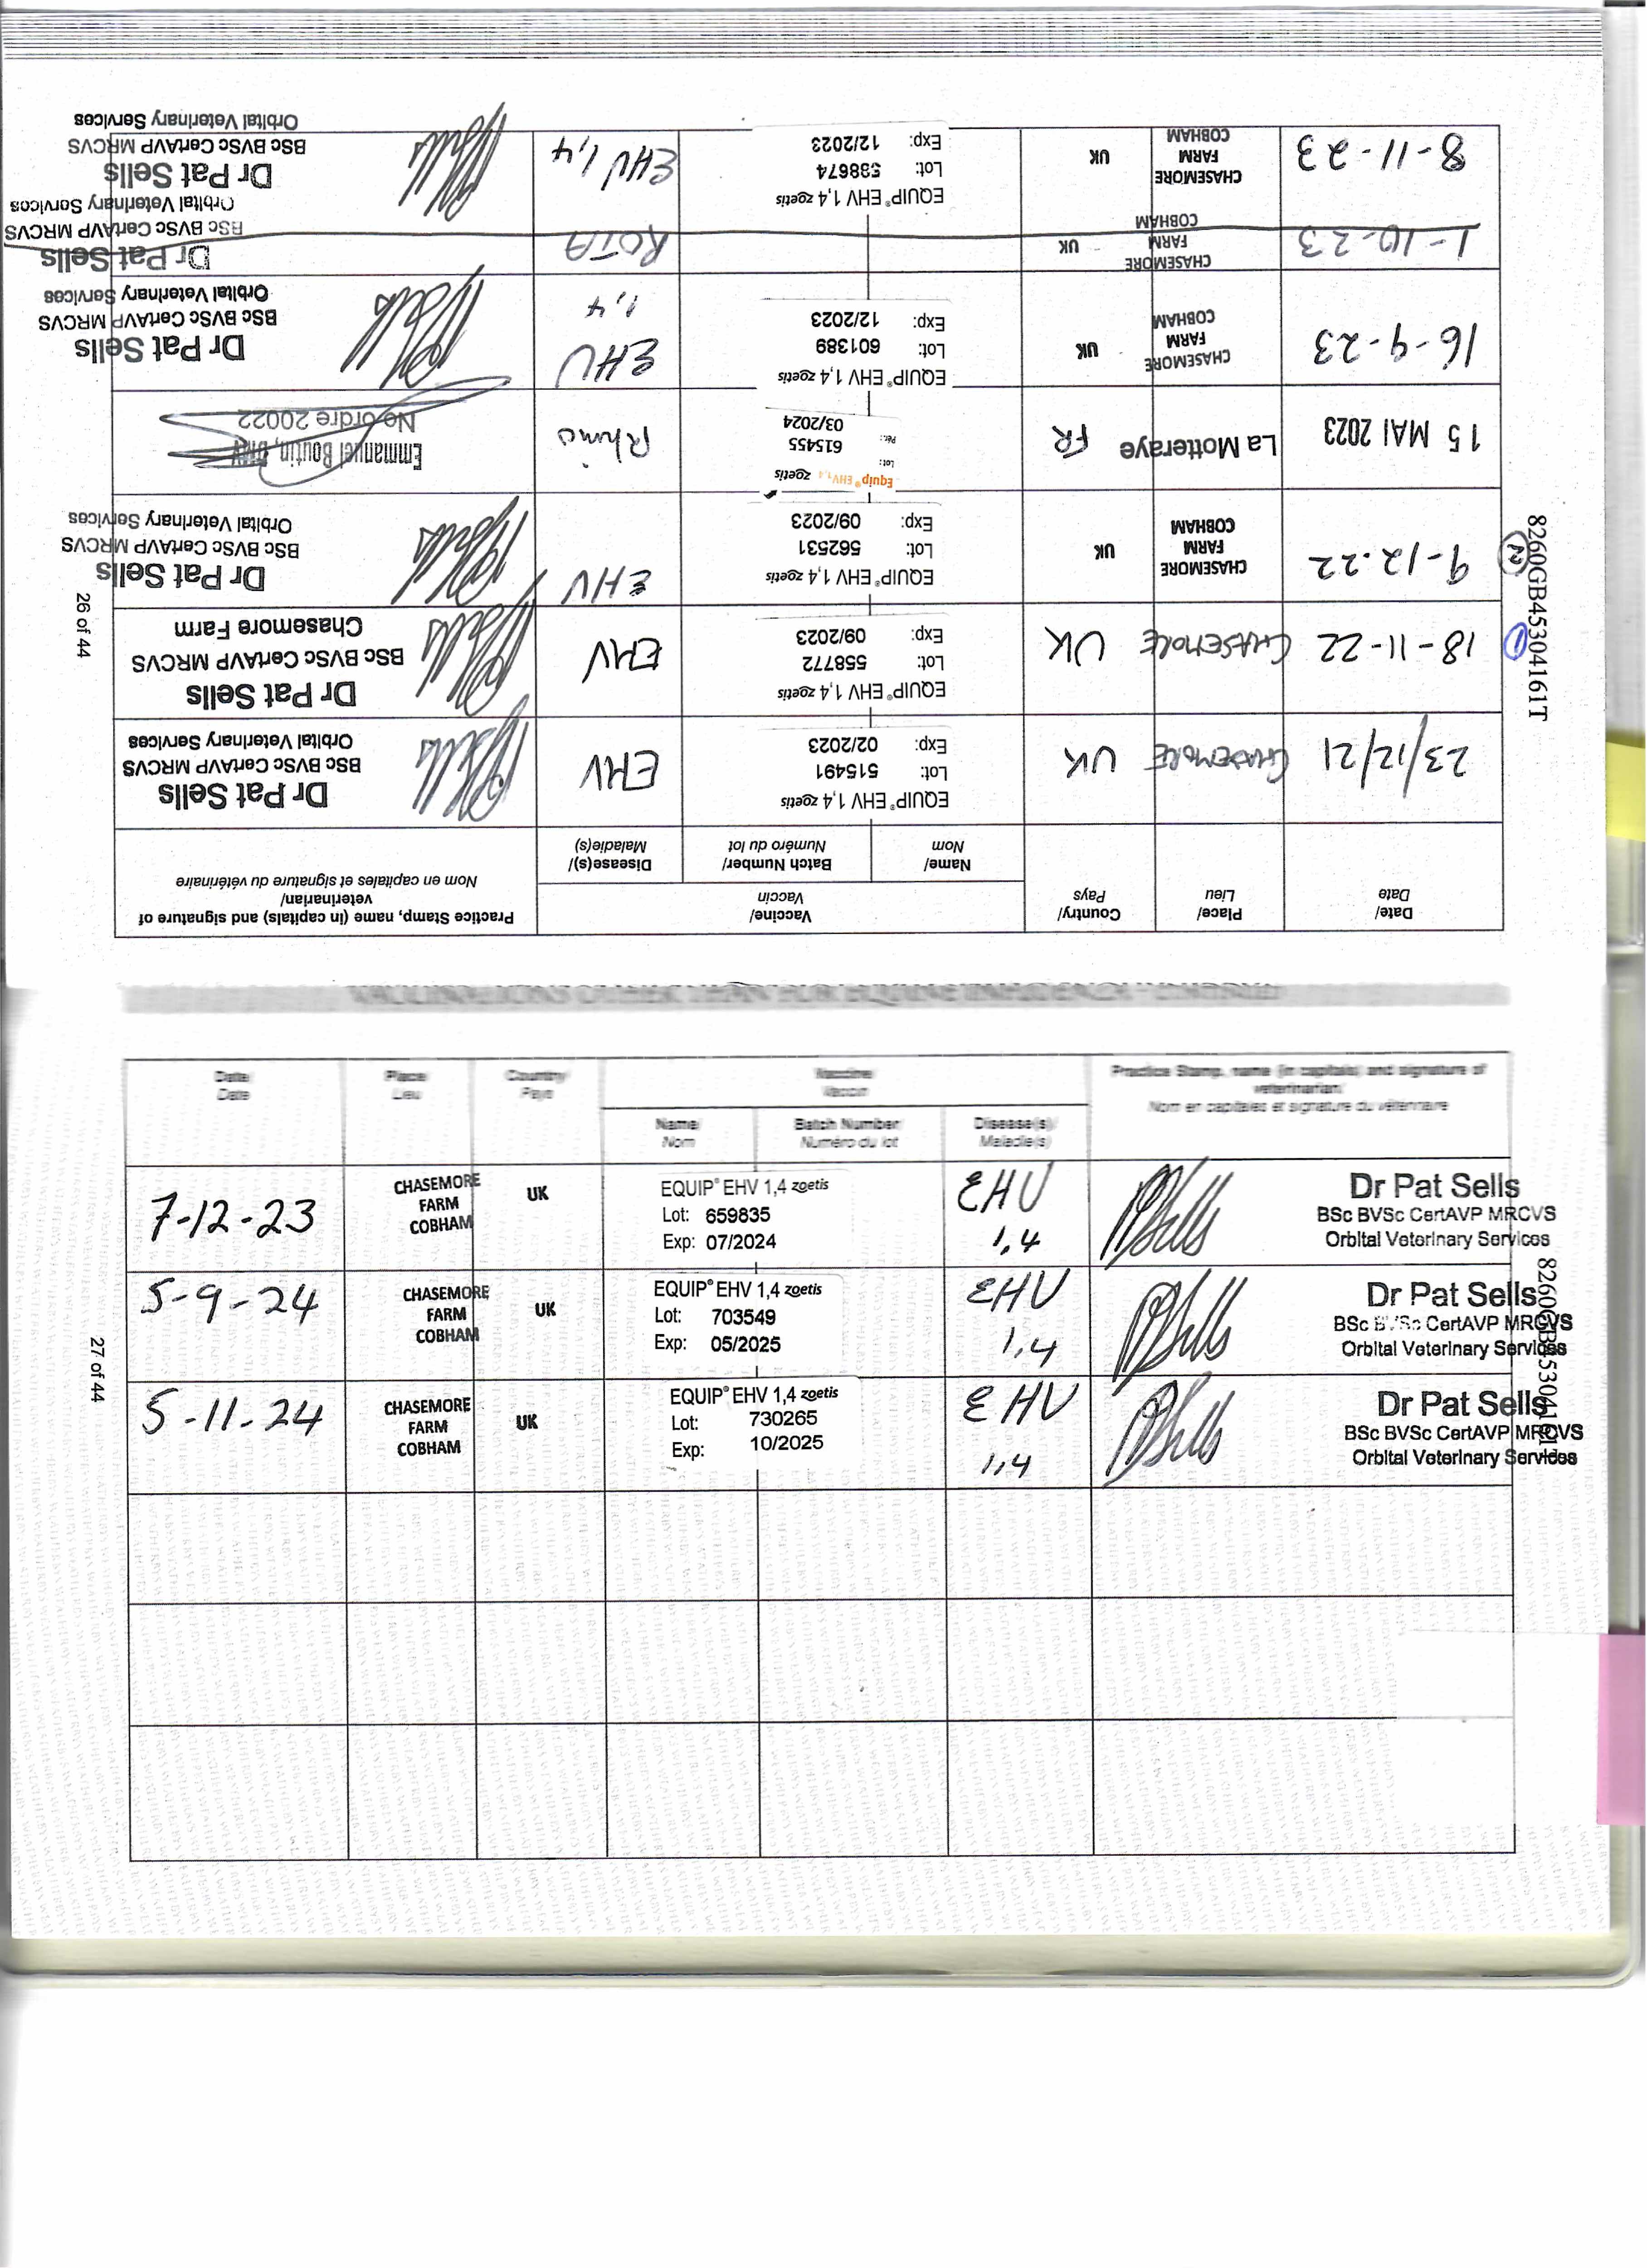 26 of 44
8260GB45304161T
Date/
Date
Place/
Lieu
Country/
Pays
Vaccine/
Vaccin
Name/
Nom
Batch Number/
Numéro du lot
Disease(s)/
Maladie(s)
Practice Stamp, name (in capitals) and signature of
veterinarian/
Nom en capitales et signature du vétérinaire
23/12/21
CHASEMORE
UK
EQUIP® EHV 1,4 zoetis
Lot: 515491
Exp: 02/2023
EHV
Dr Pat Sells
BSc BVSc CertAVP MRCVS
Orbital Veterinary Services
1
18-11-22
CHASEMORE
UK
EQUIP® EHV 1,4 zoetis
Lot: 558772
Exp: 09/2023
EHV
Dr Pat Sells
BSc BVSc CertAVP MRCVS
Chasemore Farm
2
9-12-22
CHASEMORE
FARM
COBHAM
UK
EQUIP® EHV 1,4 zoetis
Lot: 562531
Exp: 09/2023
EHV
Dr Pat Sells
BSc BVSc CertAVP MRCVS
Orbital Veterinary Services
15 MAI 2023
La Motteraye
FR
Equip® EHV 1,4 zoetis
Lot: 615455
Pér.: 03/2024
Rhino
Emmanuel Boutin, DMV
No ordre 20022
16-9-23
CHASEMORE
FARM
COBHAM
UK
EQUIP® EHV 1,4 zoetis
Lot: 601389
Exp: 12/2023
EHV
1,4
Dr Pat Sells
BSc BVSc CertAVP MRCVS
Orbital Veterinary Services
1-10-23
CHASEMORE
FARM
COBHAM
UK
ROTA
Dr Pat Sells
BSc BVSc CertAVP MRCVS
Orbital Veterinary Services
8-11-23
CHASEMORE
FARM
COBHAM
UK
EQUIP® EHV 1,4 zoetis
Lot: 598674
Exp: 12/2023
EHV 1,4
Dr Pat Sells
BSc BVSc CertAVP MRCVS
Orbital Veterinary Services
27 of 44
Date/
Date
Place
Lieu
Country/
Pays
Vaccine
Vaccin
Name/
Nom
Batch Number/
Numéro du lot
Disease(s)/
Maladie(s)
Practice Stamp, name (in capitals) and signature of
veterinarian
Nom en capitales et signature du vétérinaire
7-12-23
CHASEMORE
FARM
COBHAM
UK
EQUIP® EHV 1,4 zoetis
Lot: 659835
Exp: 07/2024
EHV
1,4
Dr Pat Sells
BSc BVSc CertAVP MRCVS
Orbital Veterinary Services
5-9-24
CHASEMORE
FARM
COBHAM
UK
EQUIP® EHV 1,4 zoetis
Lot: 703549
Exp: 05/2025
EHV
1,4
Dr Pat Sells
BSc BVSc CertAVP MRCVS
Orbital Veterinary Services
5-11-24
CHASEMORE
FARM
COBHAM
UK
EQUIP® EHV 1,4 zoetis
Lot: 730265
Exp: 10/2025
EHV
1,4
Dr Pat Sells
BSc BVSc CertAVP MRCVS
Orbital Veterinary Services
8260GB45304161T